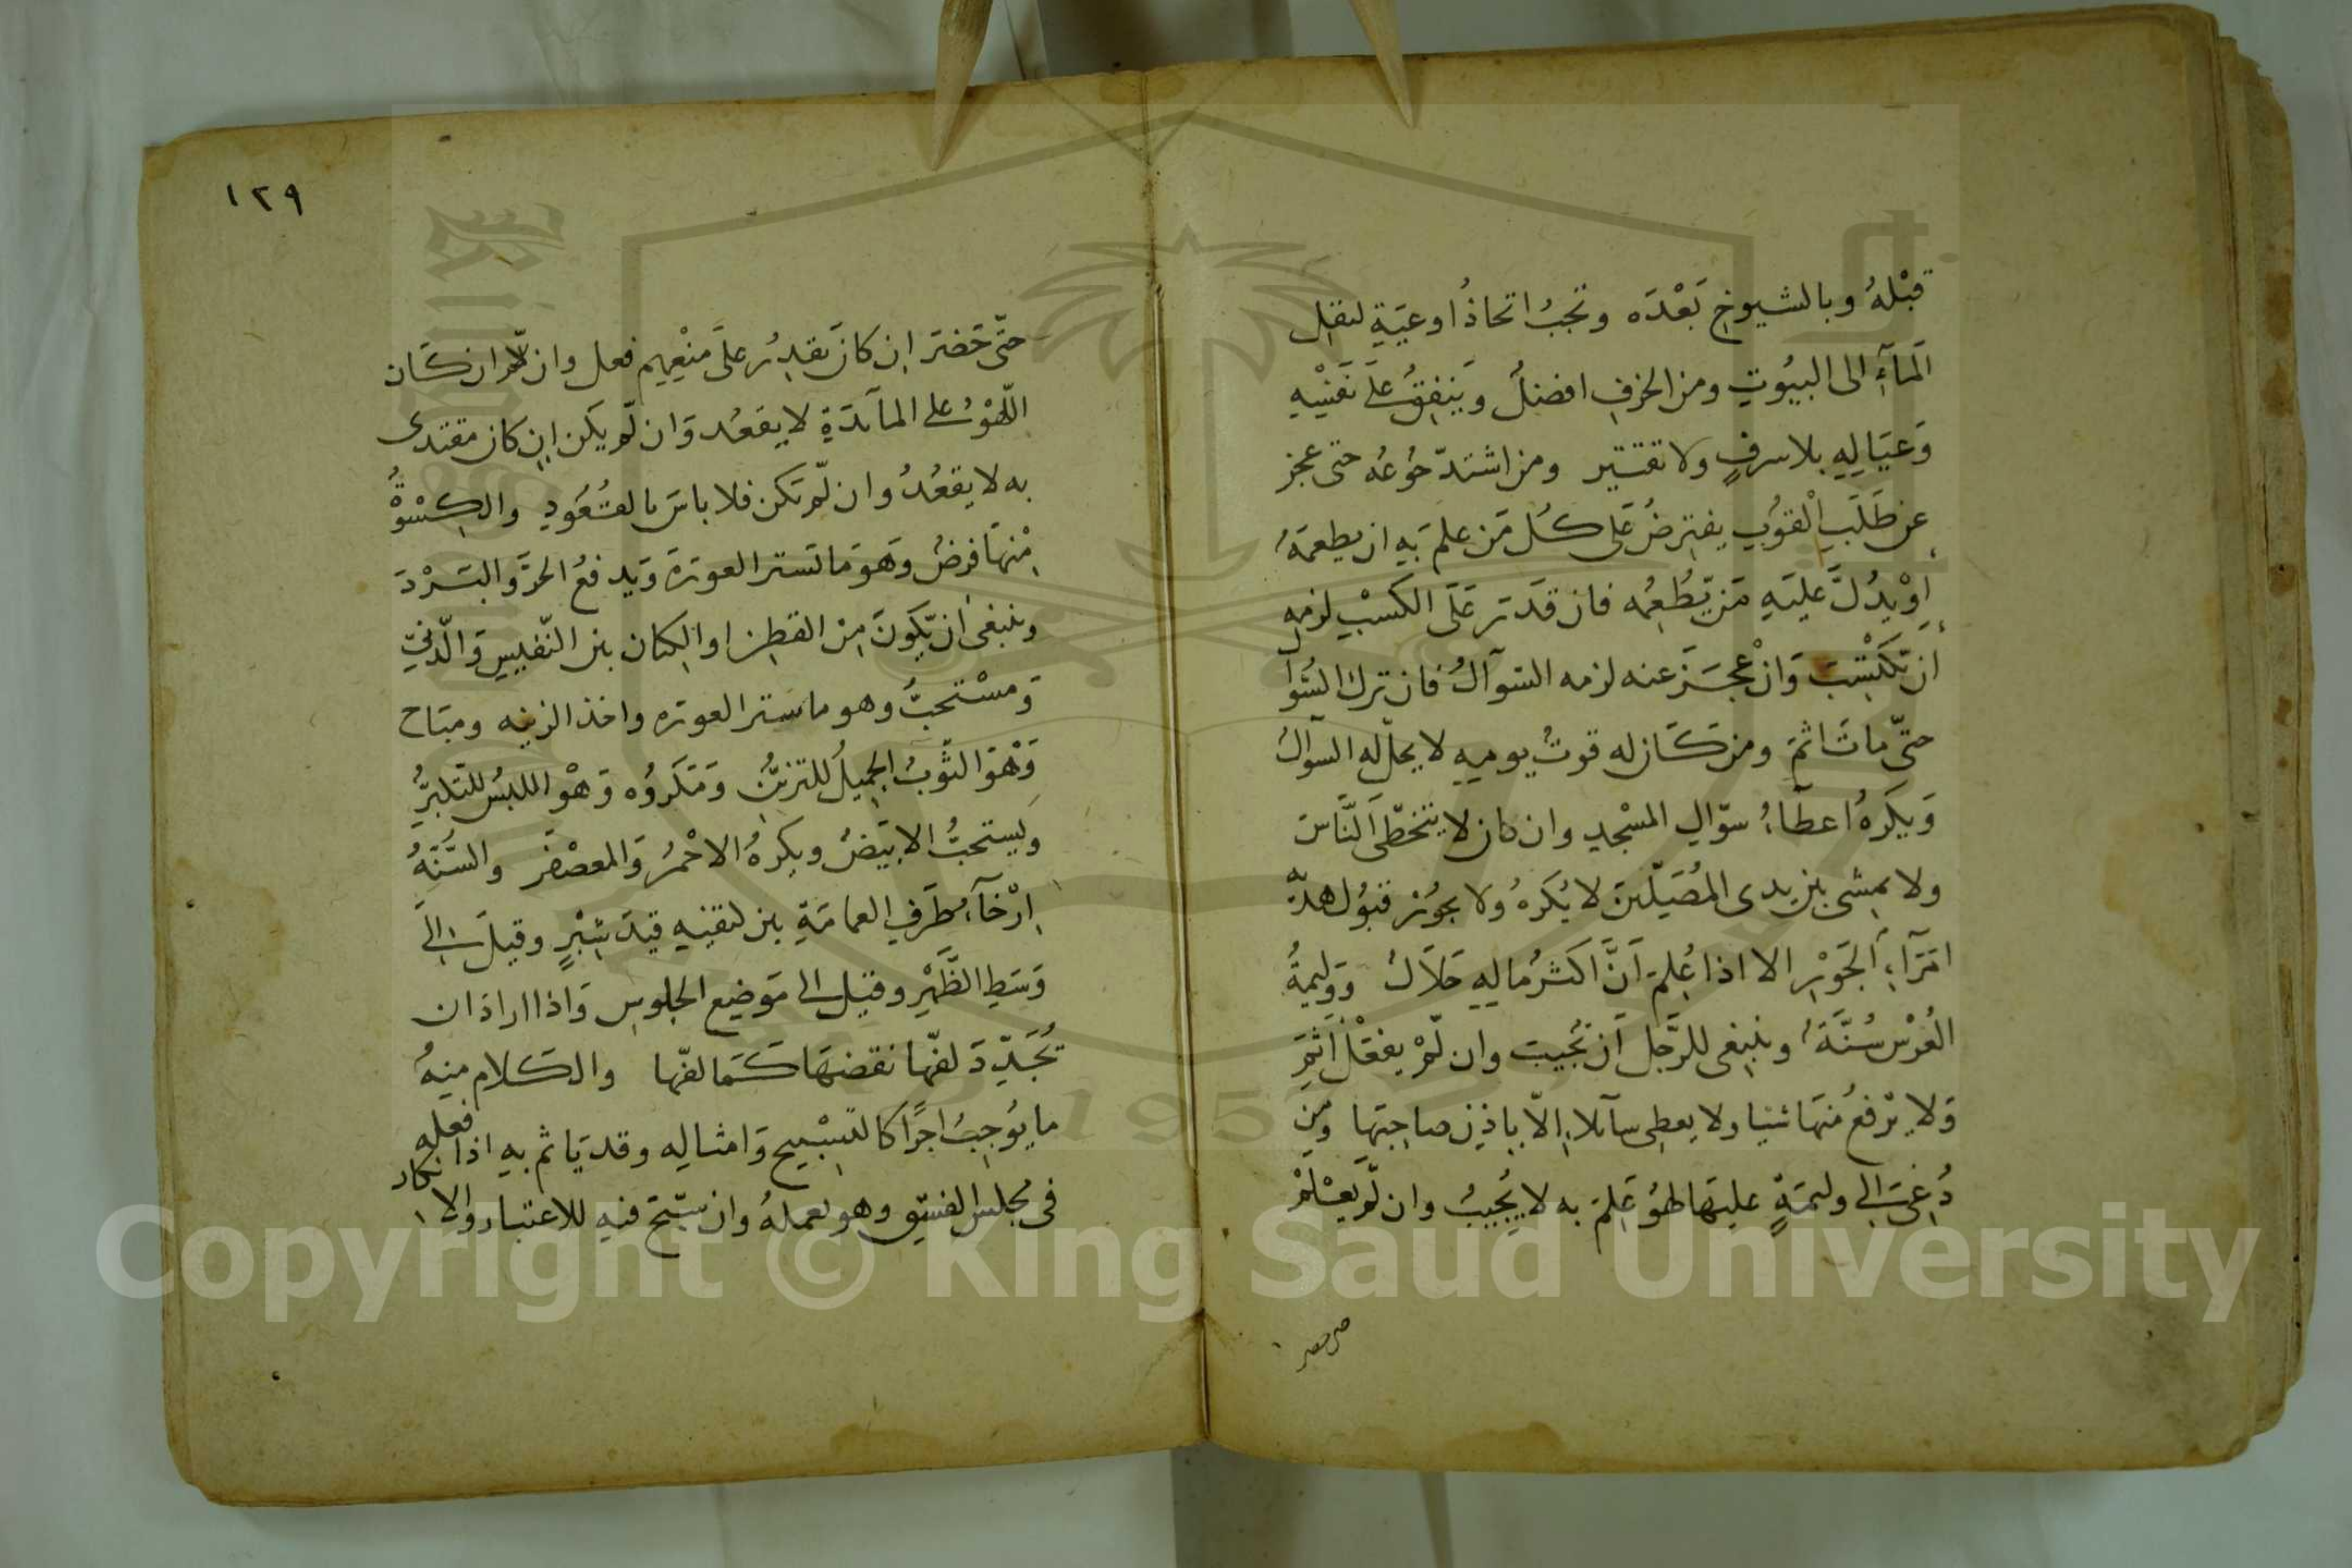 قبْلهُ وبالشيوخِ بَعْدَه وتجبُ اتخاذُ اوعيَةٍ لنقل
اَلمآءِ الى البيُوتِ ومن الخزفِ افضلُ وَينفِقُ علَى نَفسِهِ
وَعيَالِهِ بلا سرفٍ ولا تقتير ومن اشتدّ جُوعُه حتى عجز
عن طَلَبِ الْقوُتِ يفترضُ عَلى كُل مَن علمَ بهِ ان يطعمَهُ
اوْ يدُلَّ عليَهِ مَن يّطُعِمُه فان قَدَرَ عَلَى الكَسْبِ لزمه
ان يّكتْسِبَ وَانْ عجَزَ عنه لزمه السّوآلُ فان ترك السُوال
حتّى ماتَ اثمَ ومن كَان له قوتُ يومِهِ لا يحلّ له السوالُ
وَيكَرهُ اعطَآءُ سوّالِ المسْجدِ وان كان لا يتخطّى اَلنَّاسَ
ولا يمشى بين يدى المُصَيلّينَ لا يُكَرهُ ولا يجوُز قبوُل هديّة
امَرَآءِ اَلجَوْرِ الا اذا عُلِمَ اَنَّ اكَثرُ مالِهِ حَلاَلُ ووَليمةُ
العُرْسِ سُنَّةُ وينبغى للرَّجل اَن يُّجيبَ وان لّمْ يفعَلْ اَثِمَ
وَلا يرْفعُ منهَا شيا ولا يعطِى سآئلا اِلّا بِاِذِن صاحِبَها ومَن
دُعِىَ الى وليمَةٍ عليهَا لهوُ عَلِمَ به لا يُجيبُ وان لّم يَعْلَمْ
حتّى حَضَرَ
١٢٩
حتّى حَضَرَ ان كانَ يقدِرُ علَى منْعِهِم فعل وان لّم ان كَان
اللّهوْ على المآئدَةِ لا يقعُد وَان لّم يكَن ان كان مقتدى
به لا يقعُدُ وان لّم يكن فلا باسَ بالقُعُودِ والكِسْوَةُ
مِنْهَا فرضُ وَهَو مَا يَستر العورَةَ وَيدفعُ الحرَّ والبَرْدَ
وينبغى ان يّكوَنَ مِن القطِن او الكتان بين النّفيسِ وَالّدنىّ
وَمسْتحبُّ وهو ما سَتر العوره واخذ الزينه ومبَاح
وَهْوَ الثّوبُ الجميلُ للتزيّنُ وَمَكَروُه وَهْو اللبسُ للتكبرُّ
وَيستحبُّ الابيَضُ ويكرهُ الاحْمرُ وَالمعصْفَر والسُّنَّةُ
اِرْخآءُ طَرَفِ العمامَةِ بين كتفيهِ قيدَ شِبْرٍ وقيلَ الىَ
وَسَطِ الظَّهْرِ وقيَل الى مَوضِعِ الجلوسِ وَاذا ارادَ ان
يُجَدِّدَ لفّها نقضهَا كَمَا لفّها والكَلام منهُ
ما يُوجِبُ اجرًا كالتسْبِيحِ وَامثالِه وقد يَاثم بهِ اذا فعله
فى مجلسِ الفسِقِ وهو يعملهُ وان سَبّحَ فيهِ للاعتبار والانكار
Copyright © King Saud University
1957